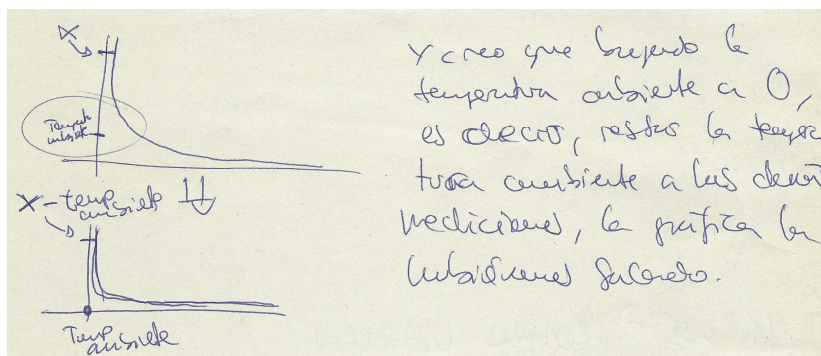 X
Temperatura
ambiente
X - temp
ambiente
Temp
ambiente
Y creo que bajando la
temperatura ambiente a 0,
es decir, restar la tempera
tura ambiente a las demás
mediciones, la gráfica la
hubiéramos sacado.